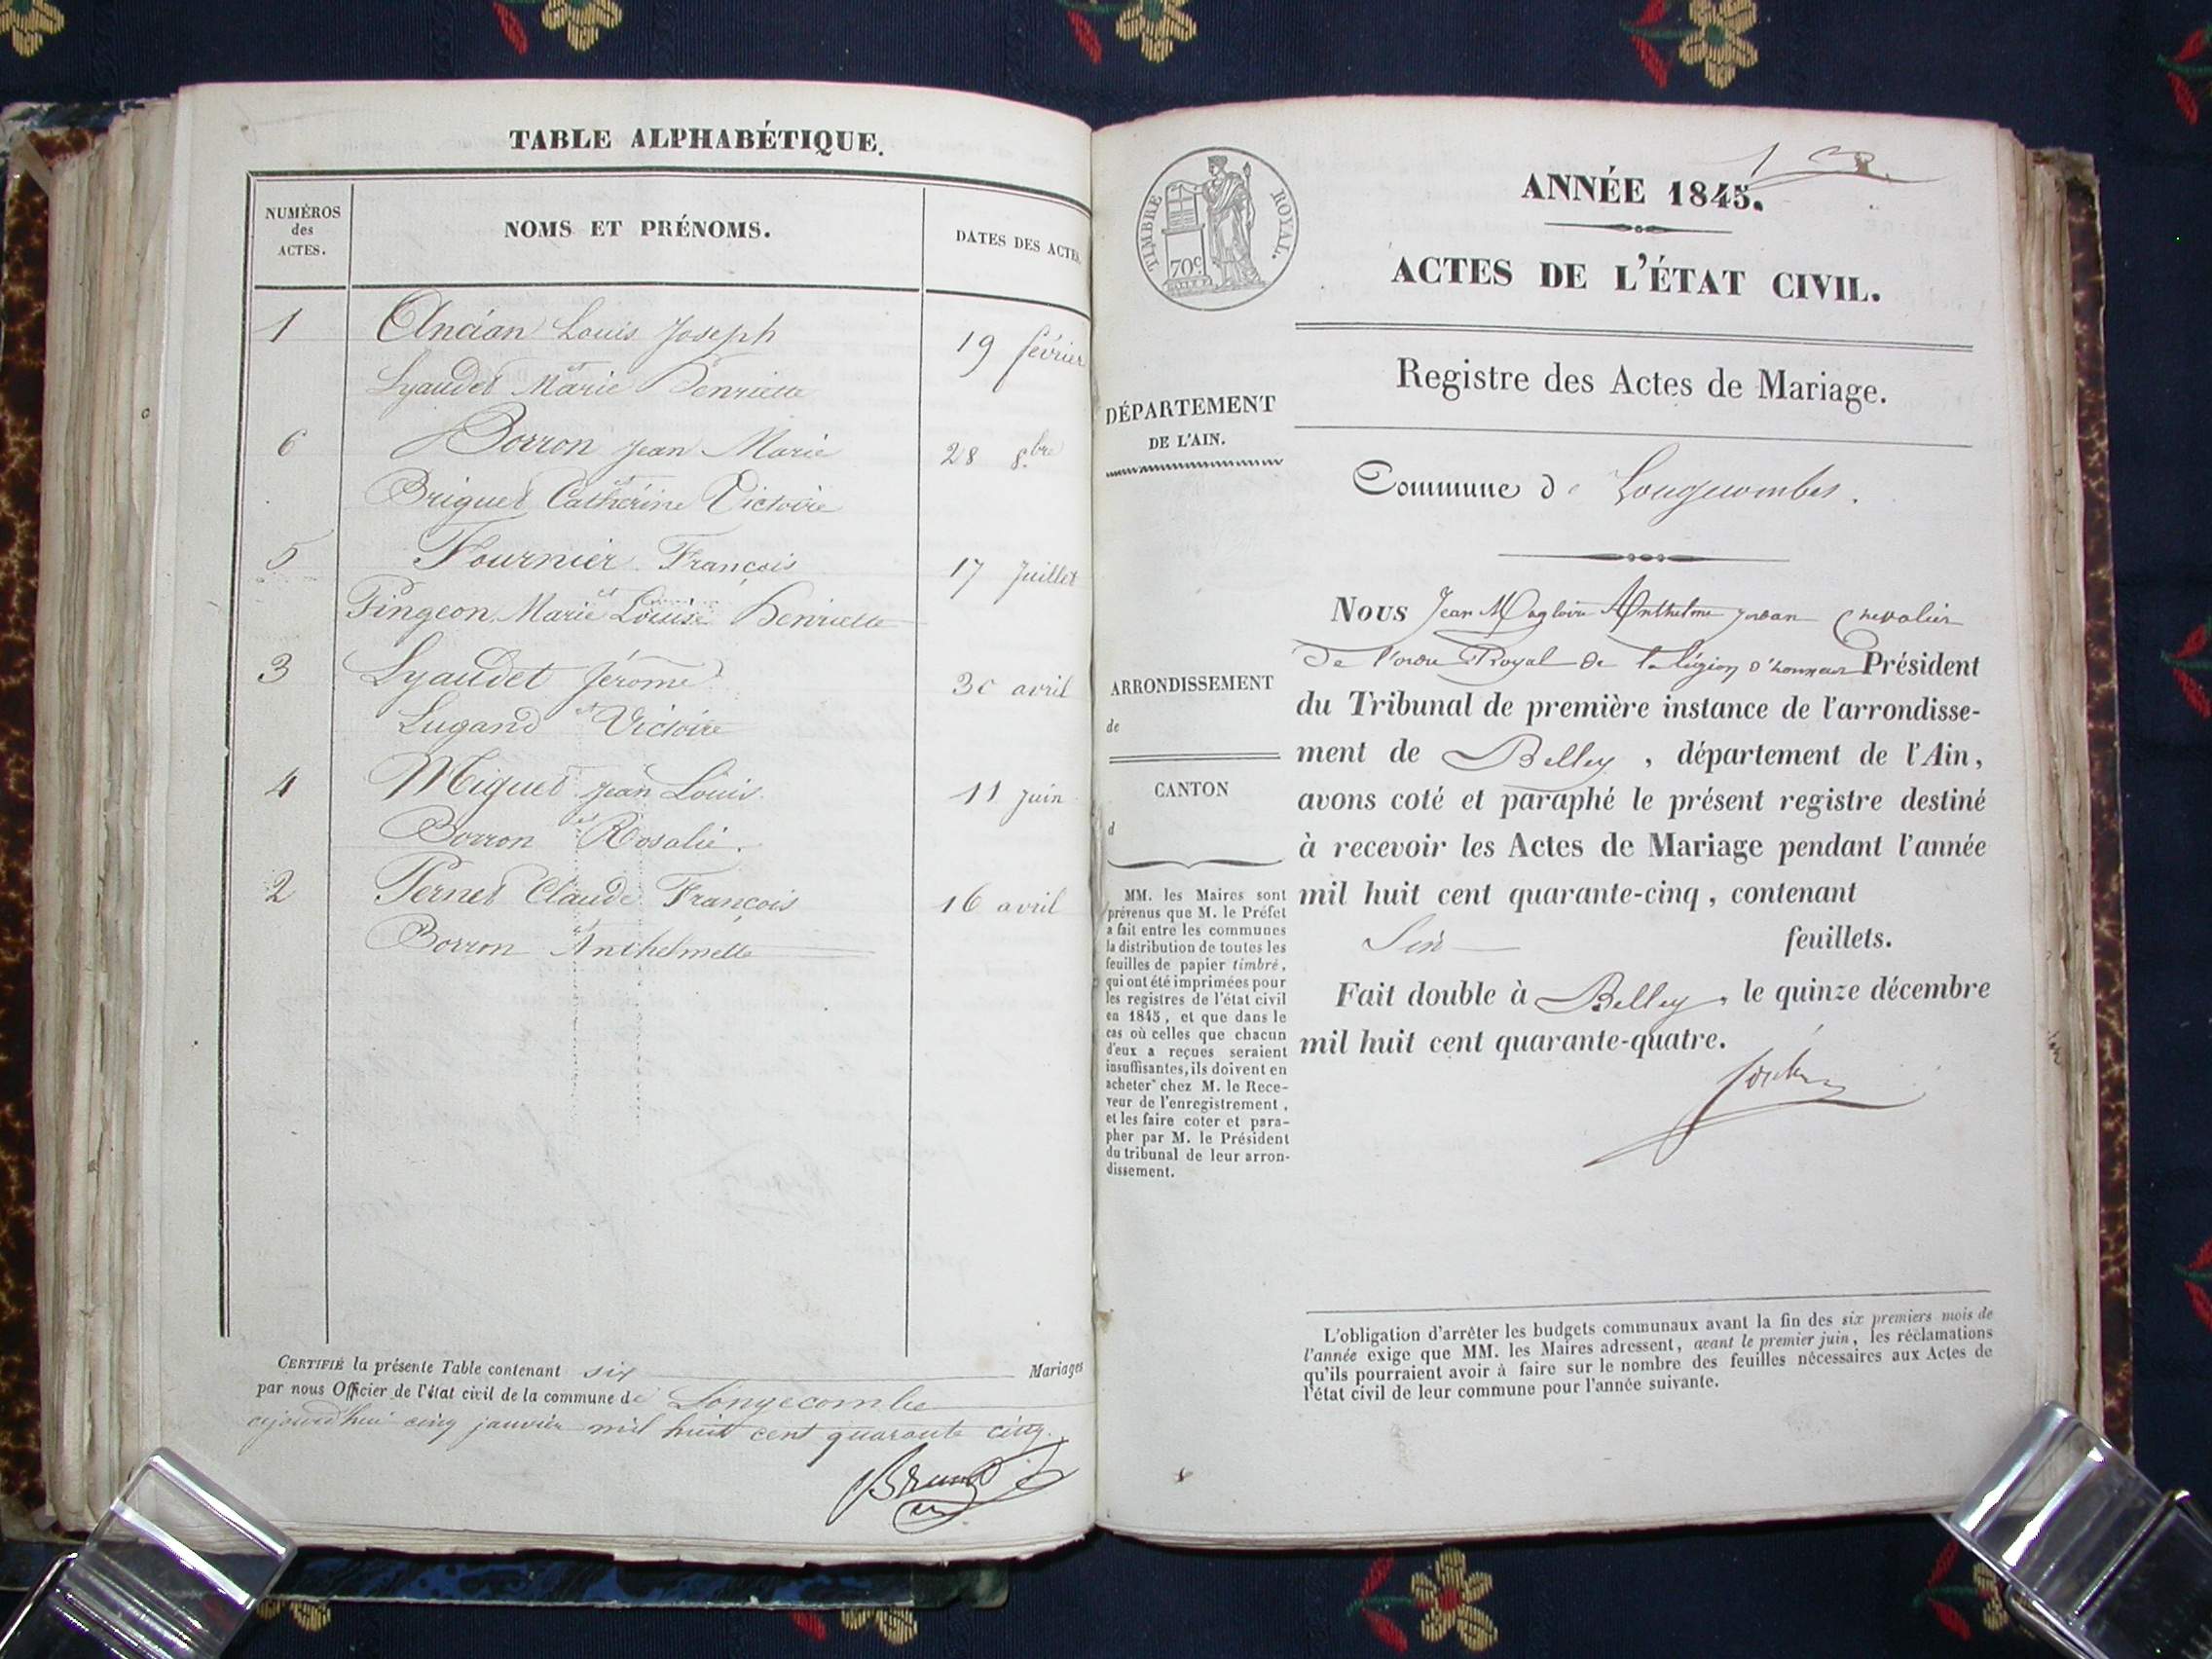 TABLE ALPHABÉTIQUE.
NUMÉROS des ACTES.
NOMS ET PRÉNOMS.
DATES DES ACTES
1 Ancian Louis Joseph 19 février
et
Lyaudet Marie Henriette
6 Borron Jean Marie 28 8.bre
et
Briguet Catherine Victoire
5 Fournier François 17 Juillet
et
Pingeon Marie Louise Henriette
3 Lyaudet Jérome 30 avril
et
Lugand Victoire
4 Miguet Jean Louis 11 juin
et
Borron Rosalie.
2 Pernet Claude François 16 avril
et
Borron Anthelmette
CERTIFIÉ la présente Table contenant six Mariages
par nous Officier de l'état civil de la commune de Longecombe
cinq janvier mil huit cent quarante cinq.
1
TIMBRE ROYAL.
70c
ANNÉE 1845.
ACTES DE L'ÉTAT CIVIL.
Registre des Actes de Mariage.
DÉPARTEMENT
DE L'AIN.
Commune de Longecombes.
ARRONDISSEMENT
de
CANTON
d
MM. les Maires sont
prévenus que M. le Préfet
a fait entre les communes
la distribution de toutes les
feuilles de papier timbré,
qui ont été imprimées pour
les registres de l'état civil
en 1845, et que dans le
cas où celles que chacun
d'eux a reçues seraient
insuffisantes, ils doivent en
acheter chez M. le Rece-
veur de l'enregistrement,
et les faire coter et para-
pher par M. le Président
du tribunal de leur arron-
dissement.
Nous Jean Magloire Anthelme Jordan Chevalier
De l'ordre Royal de la Légion d'honneur Président
du Tribunal de première instance de l'arrondisse-
ment de Belley, département de l'Ain,
avons coté et paraphé le présent registre destiné
à recevoir les Actes de Mariage pendant l'année
mil huit cent quarante-cinq, contenant
Six feuillets.
Fait double à Belley, le quinze décembre
mil huit cent quarante-quatre.
L'obligation d'arrêter les budgets communaux avant la fin des six premiers mois de
l'année exige que MM. les Maires adressent, avant le premier juin, les réclamations
qu'ils pourraient avoir à faire sur le nombre des feuilles nécessaires aux Actes de
l'état civil de leur commune pour l'année suivante.